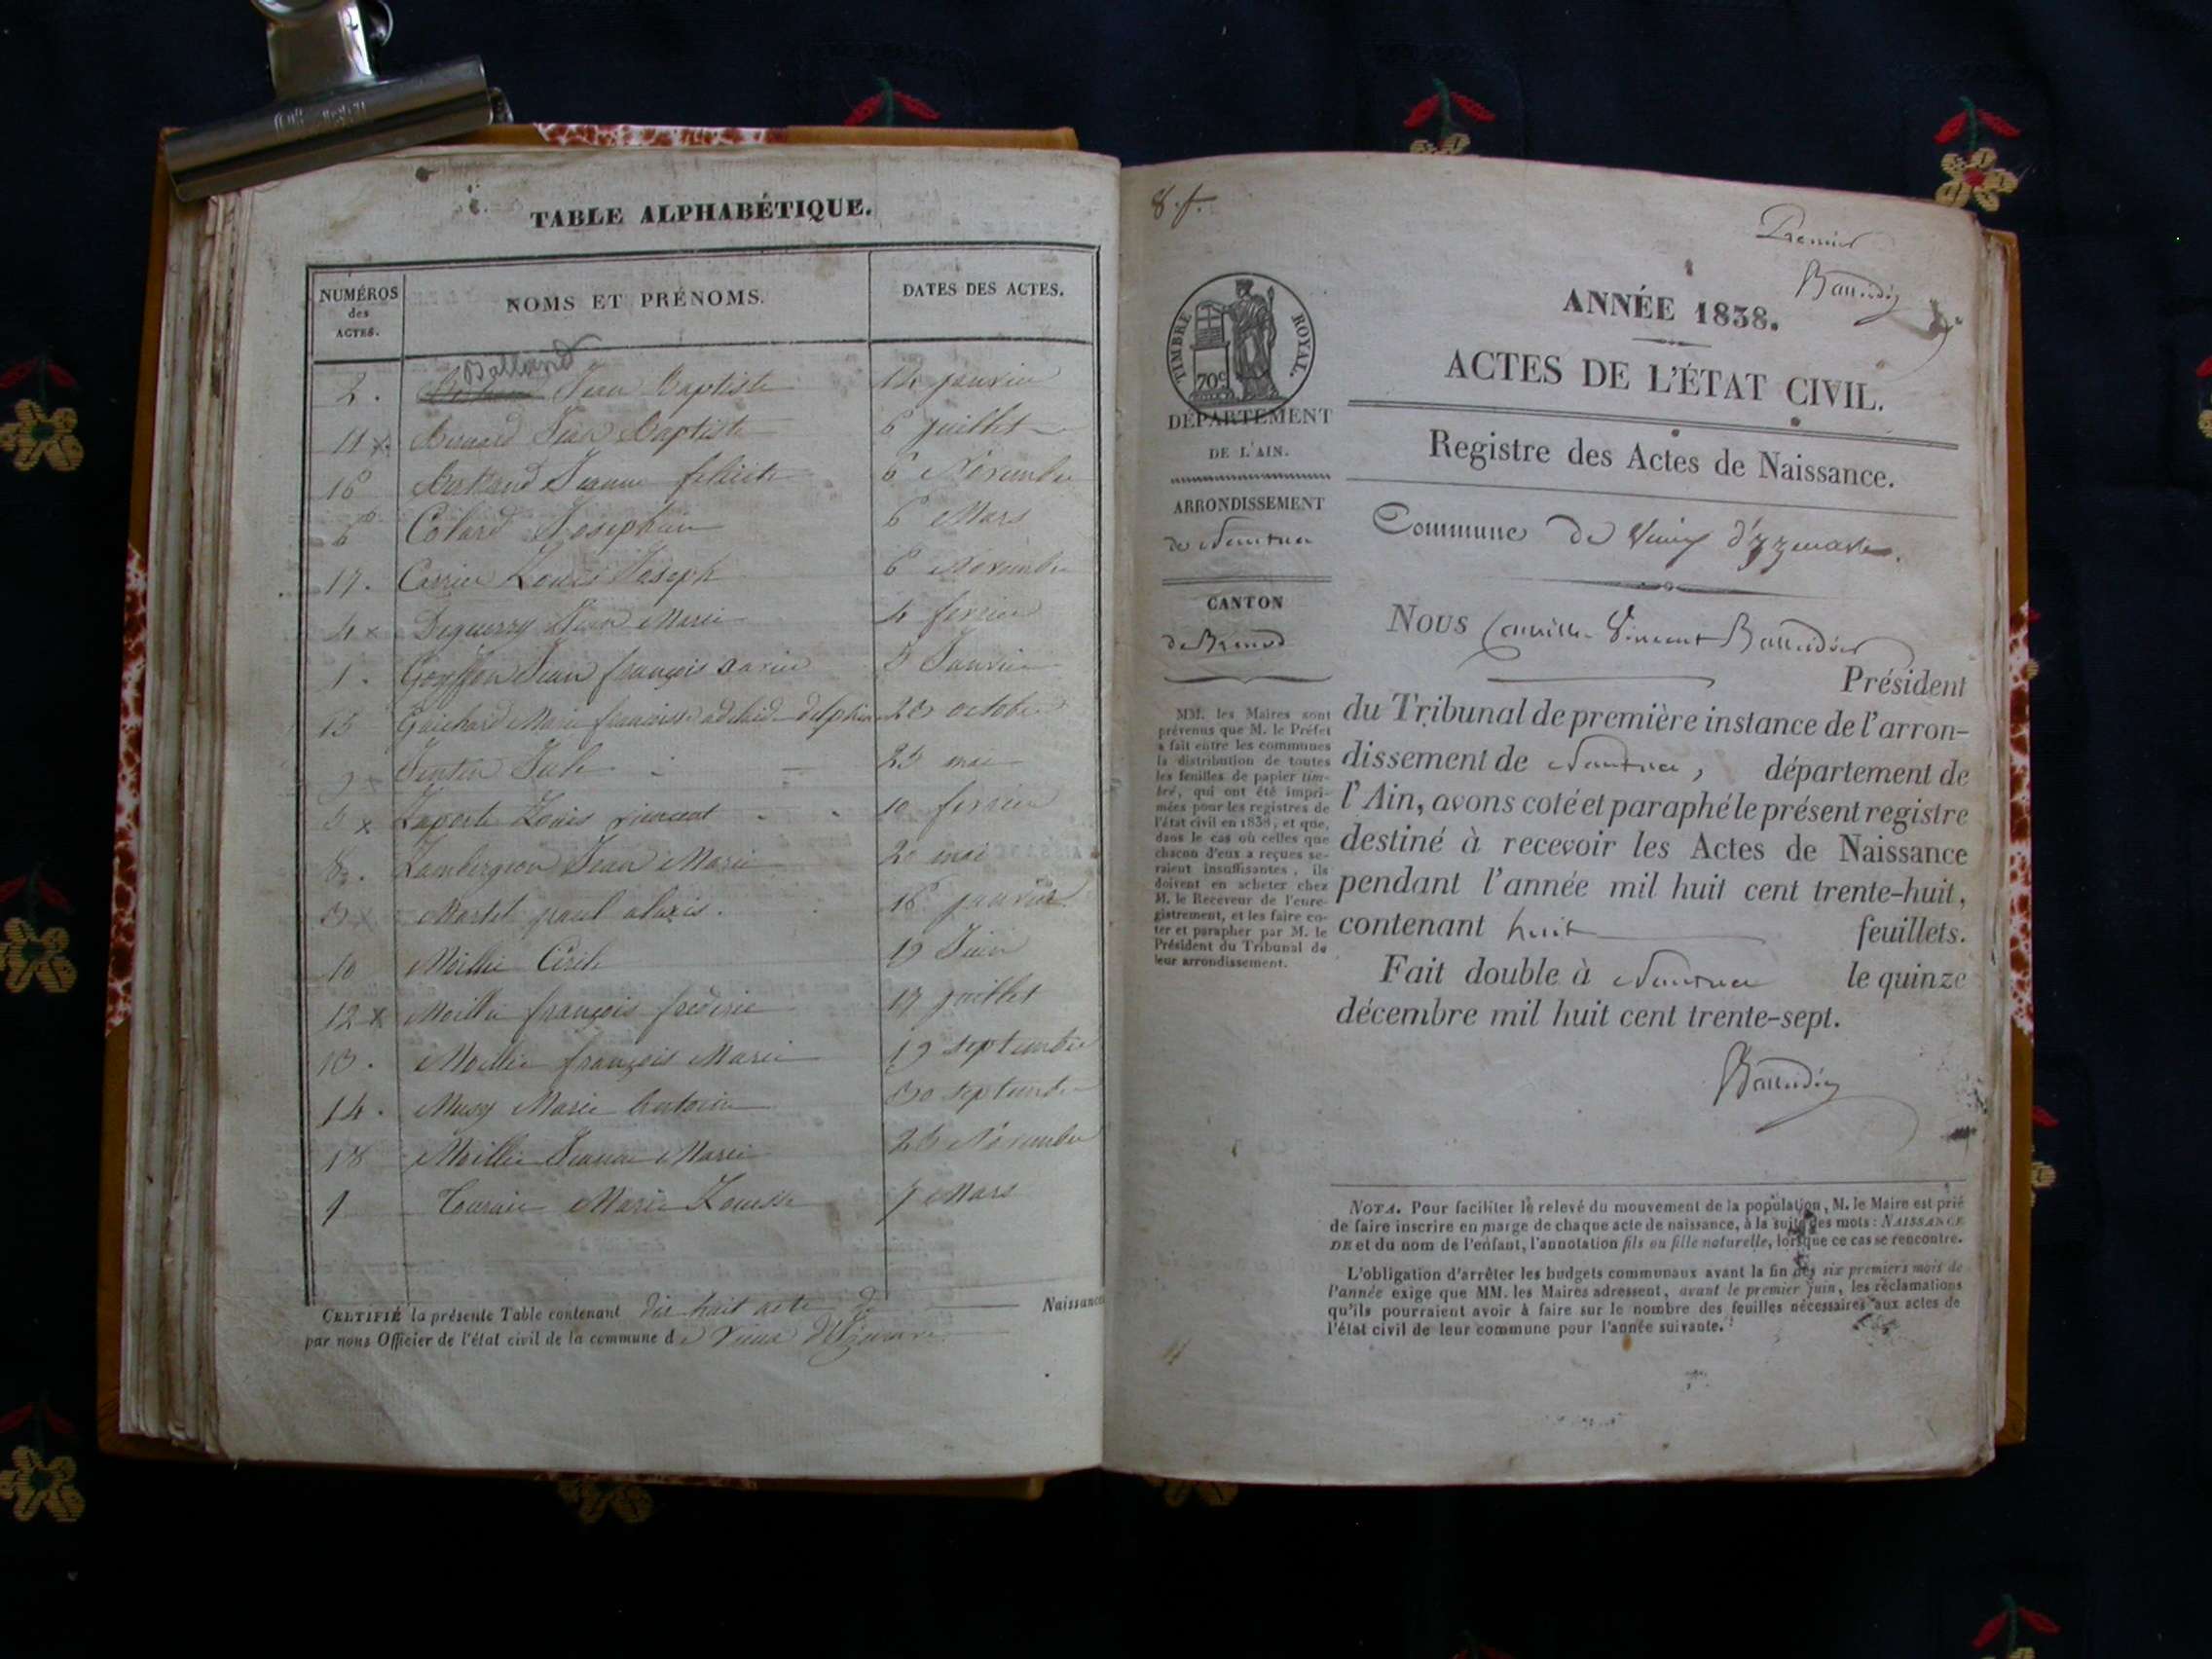 TABLE ALPHABÉTIQUE.
NUMÉROS
des
ACTES.
NOMS ET PRÉNOMS.
DATES DES ACTES.
Balland
2. Jean Baptiste 14 janvier
11 x Jean Baptiste 6 juillet
16 Bertrand Jeanne felicite 6 Novembre
6 Colard Josephine 6 Mars
17. Carrier Louis Joseph 6 Novembre
4 x Deguerry Jean Marie 4 fevrier
1. Goyffon Jean françois Xavier 3 Janvier
15 Guichard Marie francoise adelaide delphine 20 octobre
Jules 25 mai
5 x Laporte Louis vincent 10 fevrier
8. Lambergeon Jean Marie 20 mai
3 x Martel paul alexis. 16 janvier
10 Moillie 19 Juin
12 x Moillie françois frederic 17 juillet
13. Moillie françois Marie 19 septembre
14. Musy Marie 30 septembre
18 Moillie Jeanne Marie Novembre
Marie Louise 7 Mars
CERTIFIÉ la présente Table contenant dix huit actes de Naissance
par nous Officier de l'état civil de la commune de Vieux d'Izenave
8. f.
Premier
TIMBRE ROYAL.
70c
DÉPARTEMENT
DE L'AIN.
ARRONDISSEMENT
de Nantua
CANTON
de Brenod
MM. les Maires sont
prévenus que M. le Préfet
a fait entre les communes
la distribution de toutes
les feuilles de papier tim-
bré, qui ont été impri-
mées pour les registres de
l'état civil en 1838, et que,
dans le cas où celles que
chacun d'eux a reçues se-
raient insuffisantes, ils
doivent en acheter chez
M. le Receveur de l'enre-
gistrement, et les faire co-
ter et parapher par M. le
Président du Tribunal de
leur arrondissement.
ANNÉE 1838.
ACTES DE L'ÉTAT CIVIL.
Registre des Actes de Naissance.
Commune de Vieux d'Yzenave.
Nous Camille Vincent
Président
du Tribunal de première instance de l'arron-
dissement de Nantua, département de
l'Ain, avons coté et paraphé le présent registre
destiné à recevoir les Actes de Naissance
pendant l'année mil huit cent trente-huit,
contenant huit feuillets.
Fait double à Nantua le quinze
décembre mil huit cent trente-sept.
NOTA. Pour faciliter le relevé du mouvement de la population, M. le Maire est prié
de faire inscrire en marge de chaque acte de naissance, à la suite des mots : NAISSANCE
DE et du nom de l'enfant, l'annotation fils ou fille naturelle, lorsque ce cas se rencontre.
L'obligation d'arrêter les budgets communaux avant la fin des six premiers mois de
l'année exige que MM. les Maires adressent, avant le premier juin, les réclamations
qu'ils pourraient avoir à faire sur le nombre des feuilles nécessaires aux actes de
l'état civil de leur commune pour l'année suivante.